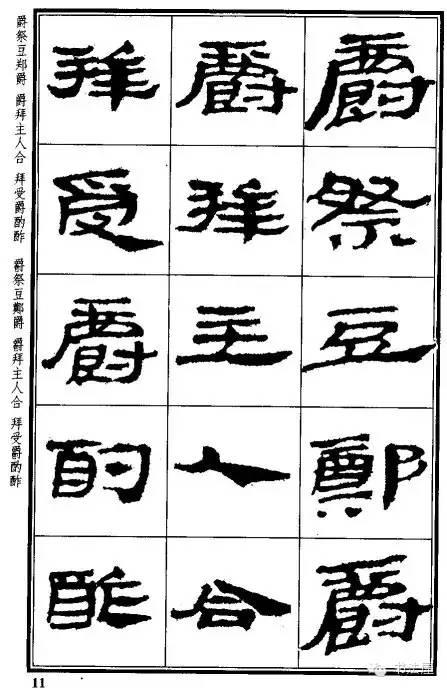 爵祭豆鄭爵
爵拜主人合
拜受爵酌酢
爵祭豆郑爵 爵拜主人合 拜受爵酌酢 爵祭豆鄭爵 爵拜主人合 拜受爵酌酢
11
书法屋